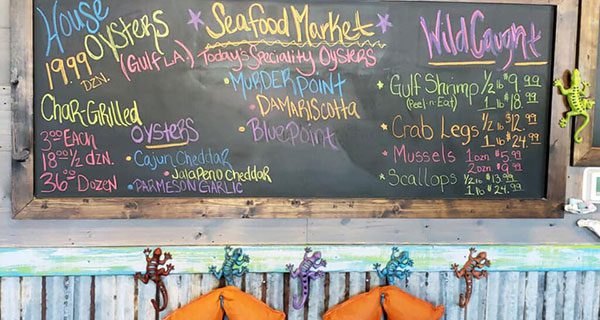 House
Oysters
19.99 DZN.
(Gulf LA.)
Char-Grilled
Oysters
3.00 Each
18.00 1/2 dzn.
36.00 Dozen
• Cajun Cheddar
• Jalapeno Cheddar
• Parmeson Garlic
Seafood Market
Today's Speciality Oysters
• Murder Point
• Damariscotta
• Blue Point
Wild Caught
• Gulf Shrimp 1/2 lb $9.99
(Peel-n-Eat) 1 lb $18.99
• Crab Legs 1/2 lb $12.99
1 lb $24.99
• Mussels 1 Dzn $5.99
2 Dzn $9.99
• Scallops 1/2 lb $13.99
1 lb $24.99